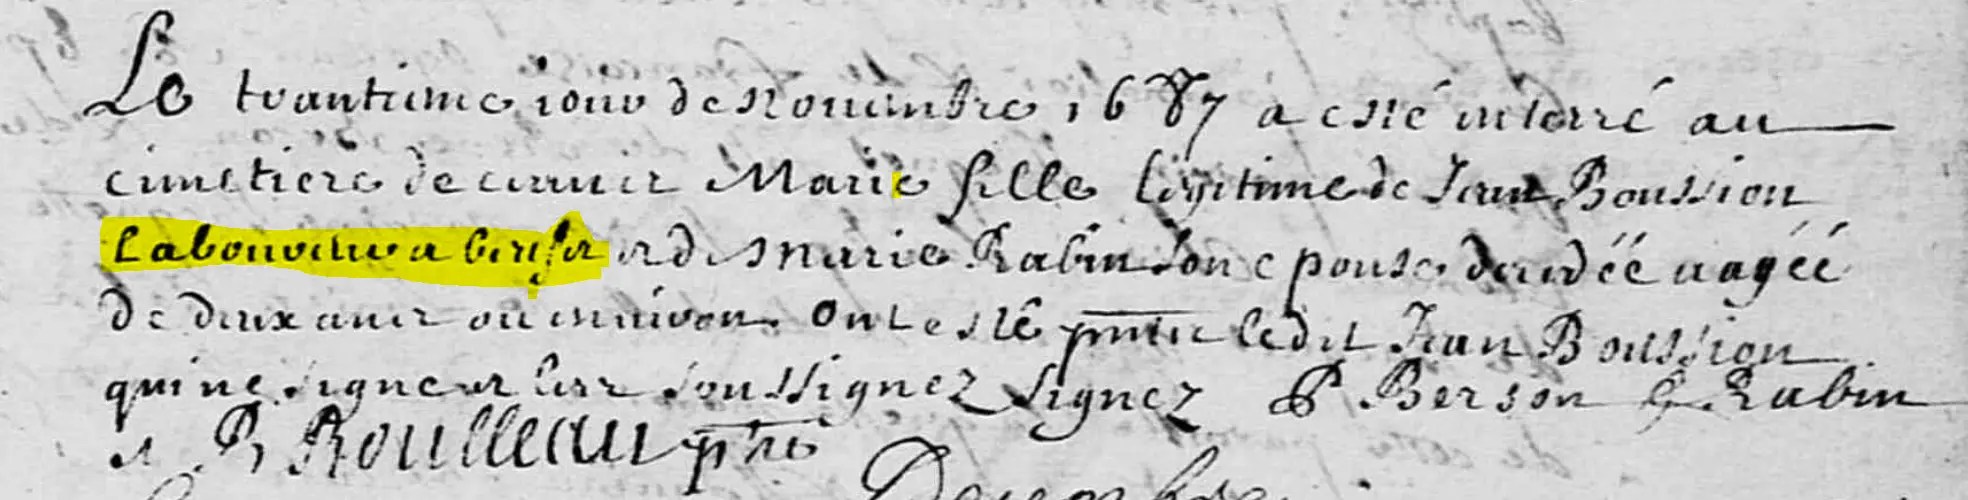 Le trantieme jour de novembre 1687 a esté interré au
cimetiere de ceans Marie fille legitime de Jean Boussion
laboureur a et de Marie Rabin son epouse decedéé aagéé
de deux ans ou environ. Ont esté pntz ledit Jean Boussion
qui ne signe et les soussignez signez P Berson G Rabin
R Roulleau pbre